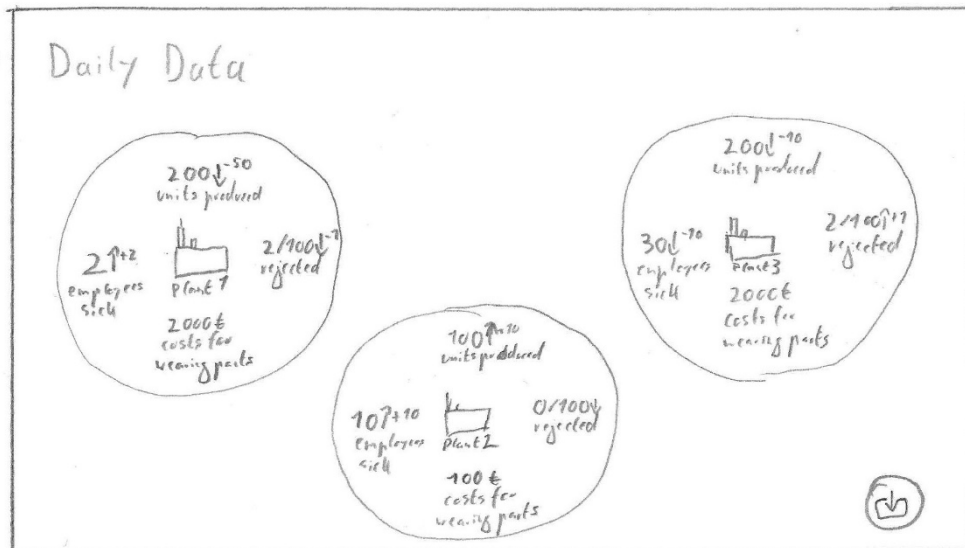 Daily Data
200↓-50
units produced
2↑+2
employees
sick
2/100↓-1
rejected
Plant 1
2000€
costs for
wearing parts
100↑+10
units produced
10↑+10
employees
sick
0/100↓
rejected
Plant 2
100€
costs for
wearing parts
200↓-10
units produced
30↓-10
employees
sick
2/100↑+1
rejected
Plant 3
2000€
costs for
wearing parts